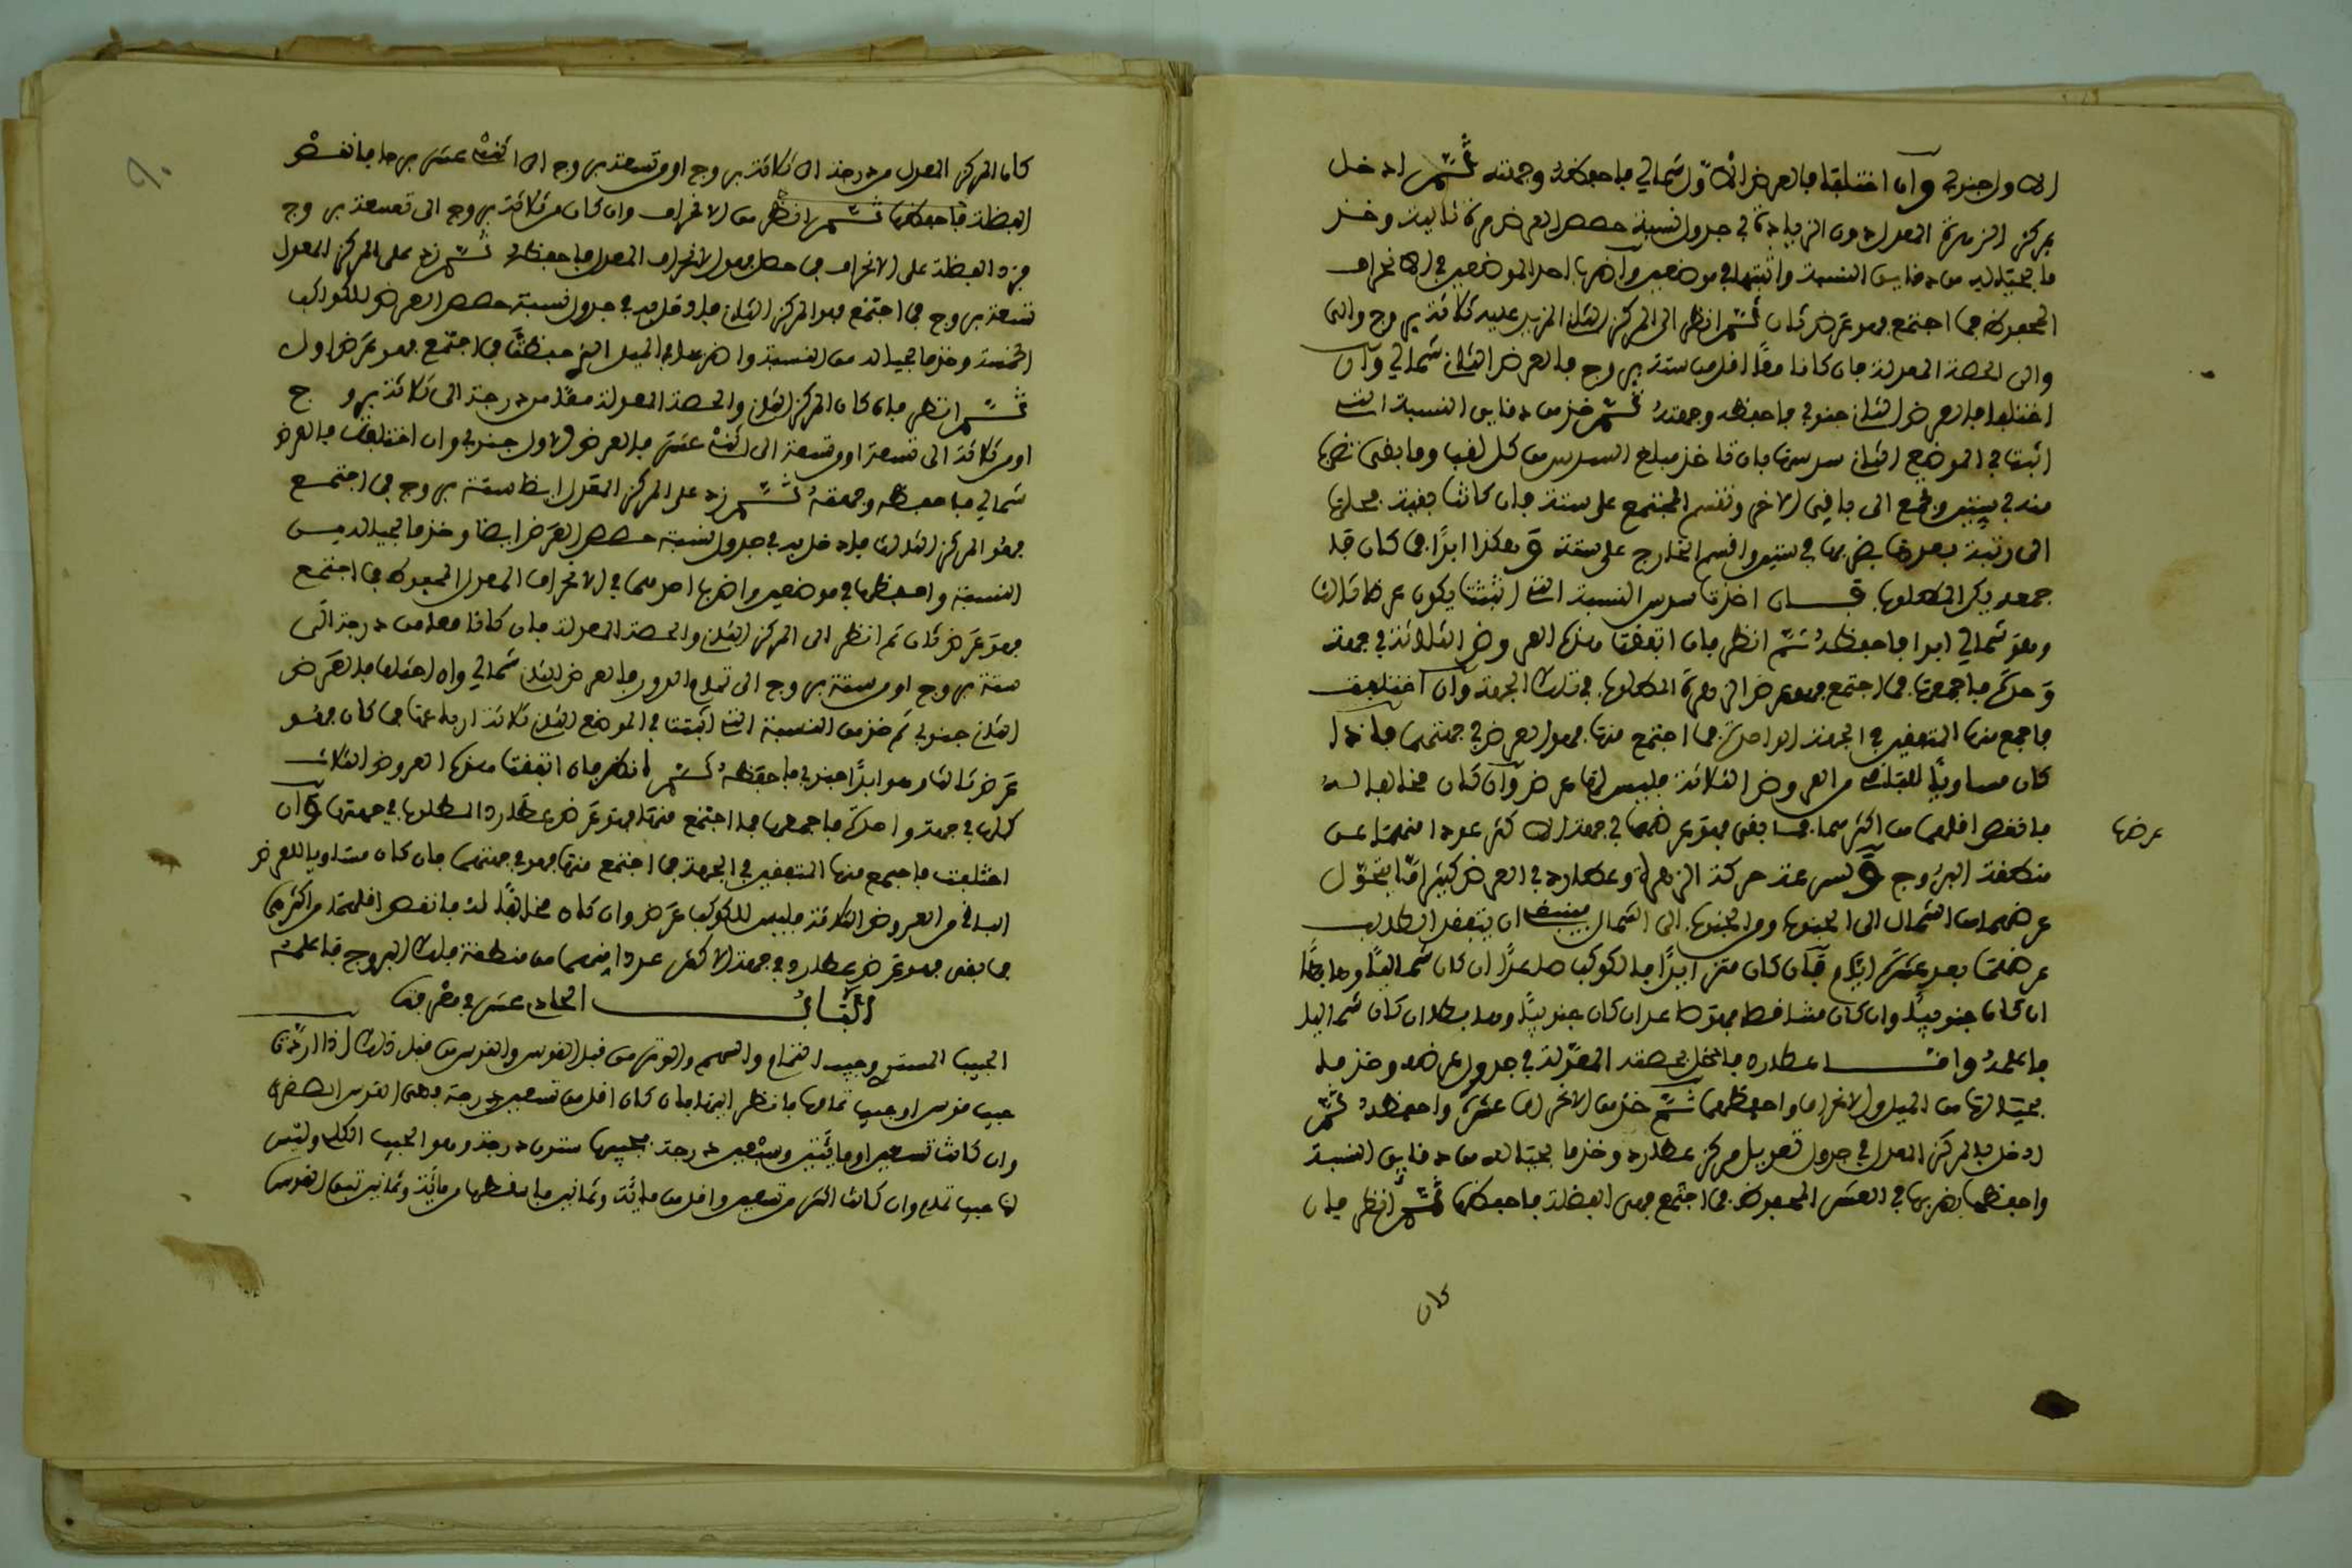 الاول جنوبي وان اختلفا فالعرض الاول شمالي فاحفظه وجهته ثم ادخل
بمركز الزهرة المعدل دون الزيادة في جدول نسبة حصص العرض مرة ثانية وخذ
ما بحياله من دقايق النسبة واثبتها في موضعين واضربها احد الموضعين في الانحراف
المحفوظ فما اجتمع فهو عرض ثان ثم انظر الى المركز الثاني المزيد عليه ثلاثة بروج والى
والى الحصة المعدلة فان كانا معا اقل من ستة بروج فالعرض الثاني شمالي وان
اختلفا فالعرض الثاني جنوبي فاحفظه وجهته ثم خذ من دقايق النسبة التي
اثبت في الموضع الثاني سدسها بان تاخذ مبلغ السدس من كل لفب وما بقى تضربه
منه في ستين وتجمع الى ما في الاخر وتقسم المجتمع على ستة فان كانت بقية فحطها
الى رتبة بعدها بضربها في ستين واقسم الخارج على ستة وهكذا ابدا فما كان قبل
جمعه يكن المطلوب فان اخذت سدس النسبة التي اثبت يكون عرضا ثالثا
وهو شمالي ابدا فاحفظه ثم انظر فان اتفقت هذه العروض الثلاثة في جهة
واحدة فاجمعها فما اجتمع فهو عرض الزهرة المطلوب في تلك الجهة وان اختلفت
فاجمع منها المتفقين في الجهة الواحدة فما اجتمع منها فهو العرض في جهتهما فاذا
كان مساويا للثالث من العروض الثلاثة فليس لها عرض وان كان مخالفا له
فانقص اقلهما من اكثرهما فما بقى فهو عرضها في جهة الاكثر عددا منهما عن
عرضها
منطقة البروج ولسرعة حركة الزهرة وعطارد في العرض كثيرا ما يتحول
عرضهما من الشمال الى الجنوب ومن الجنوب الى الشمال فينبغي ان يتفقد الطالب
عرضهما بعد عشرة ايام فان كان متزايدا فالكوكب صاعدا ان كان شماليا وهابطا
ان كان جنوبيا وان كان متناقصا فهو صاعد ان كان جنوبيا وهابط ان كان شماليا
فاعلمه واما عطارد فادخل بحصته المعدلة في جدول عرضه وخذ ما
بحيالها من الميل والانحراف واحفظهما ثم خذ من الانحراف عشره واحفظه ثم
ادخل بالمركز المعدل في جدول تعديل مركز عطارد وخذ ما بحياله من دقايق النسبة
واحفظها واضربها في العشر المحفوظ فما اجتمع فهي الفضلة فاحفظها ثم انظر فان
كان
كان المركز المعدل من درجة الى ثلاثة بروج او من تسعة بروج الى اثنى عشر برجا فانقص
الفضلة فاحفظها ثم انظر من الانحراف وان كان من ثلاثة بروج الى تسعة بروج
فزد الفضلة على الانحراف فما حصل فهو الانحراف المعدل فاحفظه ثم زد على المركز المعدل
تسعة بروج فما اجتمع فهو المركز الثاني فادخل به في جدول نسبة حصص العرض للكواكب
الخمسة وخذ ما بحياله من النسبة واضربها في الميل الذي حفظت فما اجتمع فهو عرض اول
ثم انظر فان كان المركز الثاني والحصة المعدلة معا من درجة الى ثلاثة بروج
او من ثلاثة الى تسعة او من تسعة الى اثنى عشر فالعرض الاول جنوبي وان اختلفت فالعرض
شمالي فاحفظه وجهته ثم زد على المركز المعدل ايضا ستة بروج فما اجتمع
فهو المركز الثالث فادخل به في جدول نسبة حصص العرض ايضا وخذ ما بحياله من
النسبة واحفظها في موضعين واضرب احدهما في الانحراف المعدل المحفوظ فما اجتمع
فهو عرض ثان ثم انظر الى المركز الثاني والحصة المعدلة فان كانا معا من درجة الى
ستة بروج او من ستة بروج الى تمام الدور فالعرض الثاني شمالي وان اختلفا فالعرض
الثاني جنوبي ثم خذ من النسبة التي اثبتت في الموضع الثاني ثلاثة ارباعها فما كان فهو
عرض ثالثا وهو ابدا جنوبي فاحفظه ثم انظر فان اتفقت هذه العروض الثلاث
كلها في جهة واحدة فاجمعها فما اجتمع منها فهو عرض عطارد المطلوب في جهتها وان
اختلفت فاجمع منها المتفقين في الجهة فما اجتمع منها فهو في جهتهما فان كان مساويا للعرض
الباقي من العروض الثلاثة فليس للكوكب عرض وان كان مخالفا له فانقص اقلهما من اكثرهما
فما بقى فهو عرض عطارد في جهة الاكثر عددا منهما من منطقة فلك البروج فاعلمه
الباب الحادي عشر في معرفة
الجيب المستوي وجيب التمام والسهم والوتر من قبل القوس والقوس من قبل ذلك اذا اردت
جيب قوس او جيب تمامها فانظر اليها فان كان اقل من تسعين درجة فهي القوس
وان كانت تسعين او مائتين وسبعين درجة فجيبها ستون درجة وهو الجيب الكلي وليس
لها جيب تمام وان كانت اكثر من تسعين واقل من مائة وثمانين فاسقطها من مائة وثمانين تبقى القوس